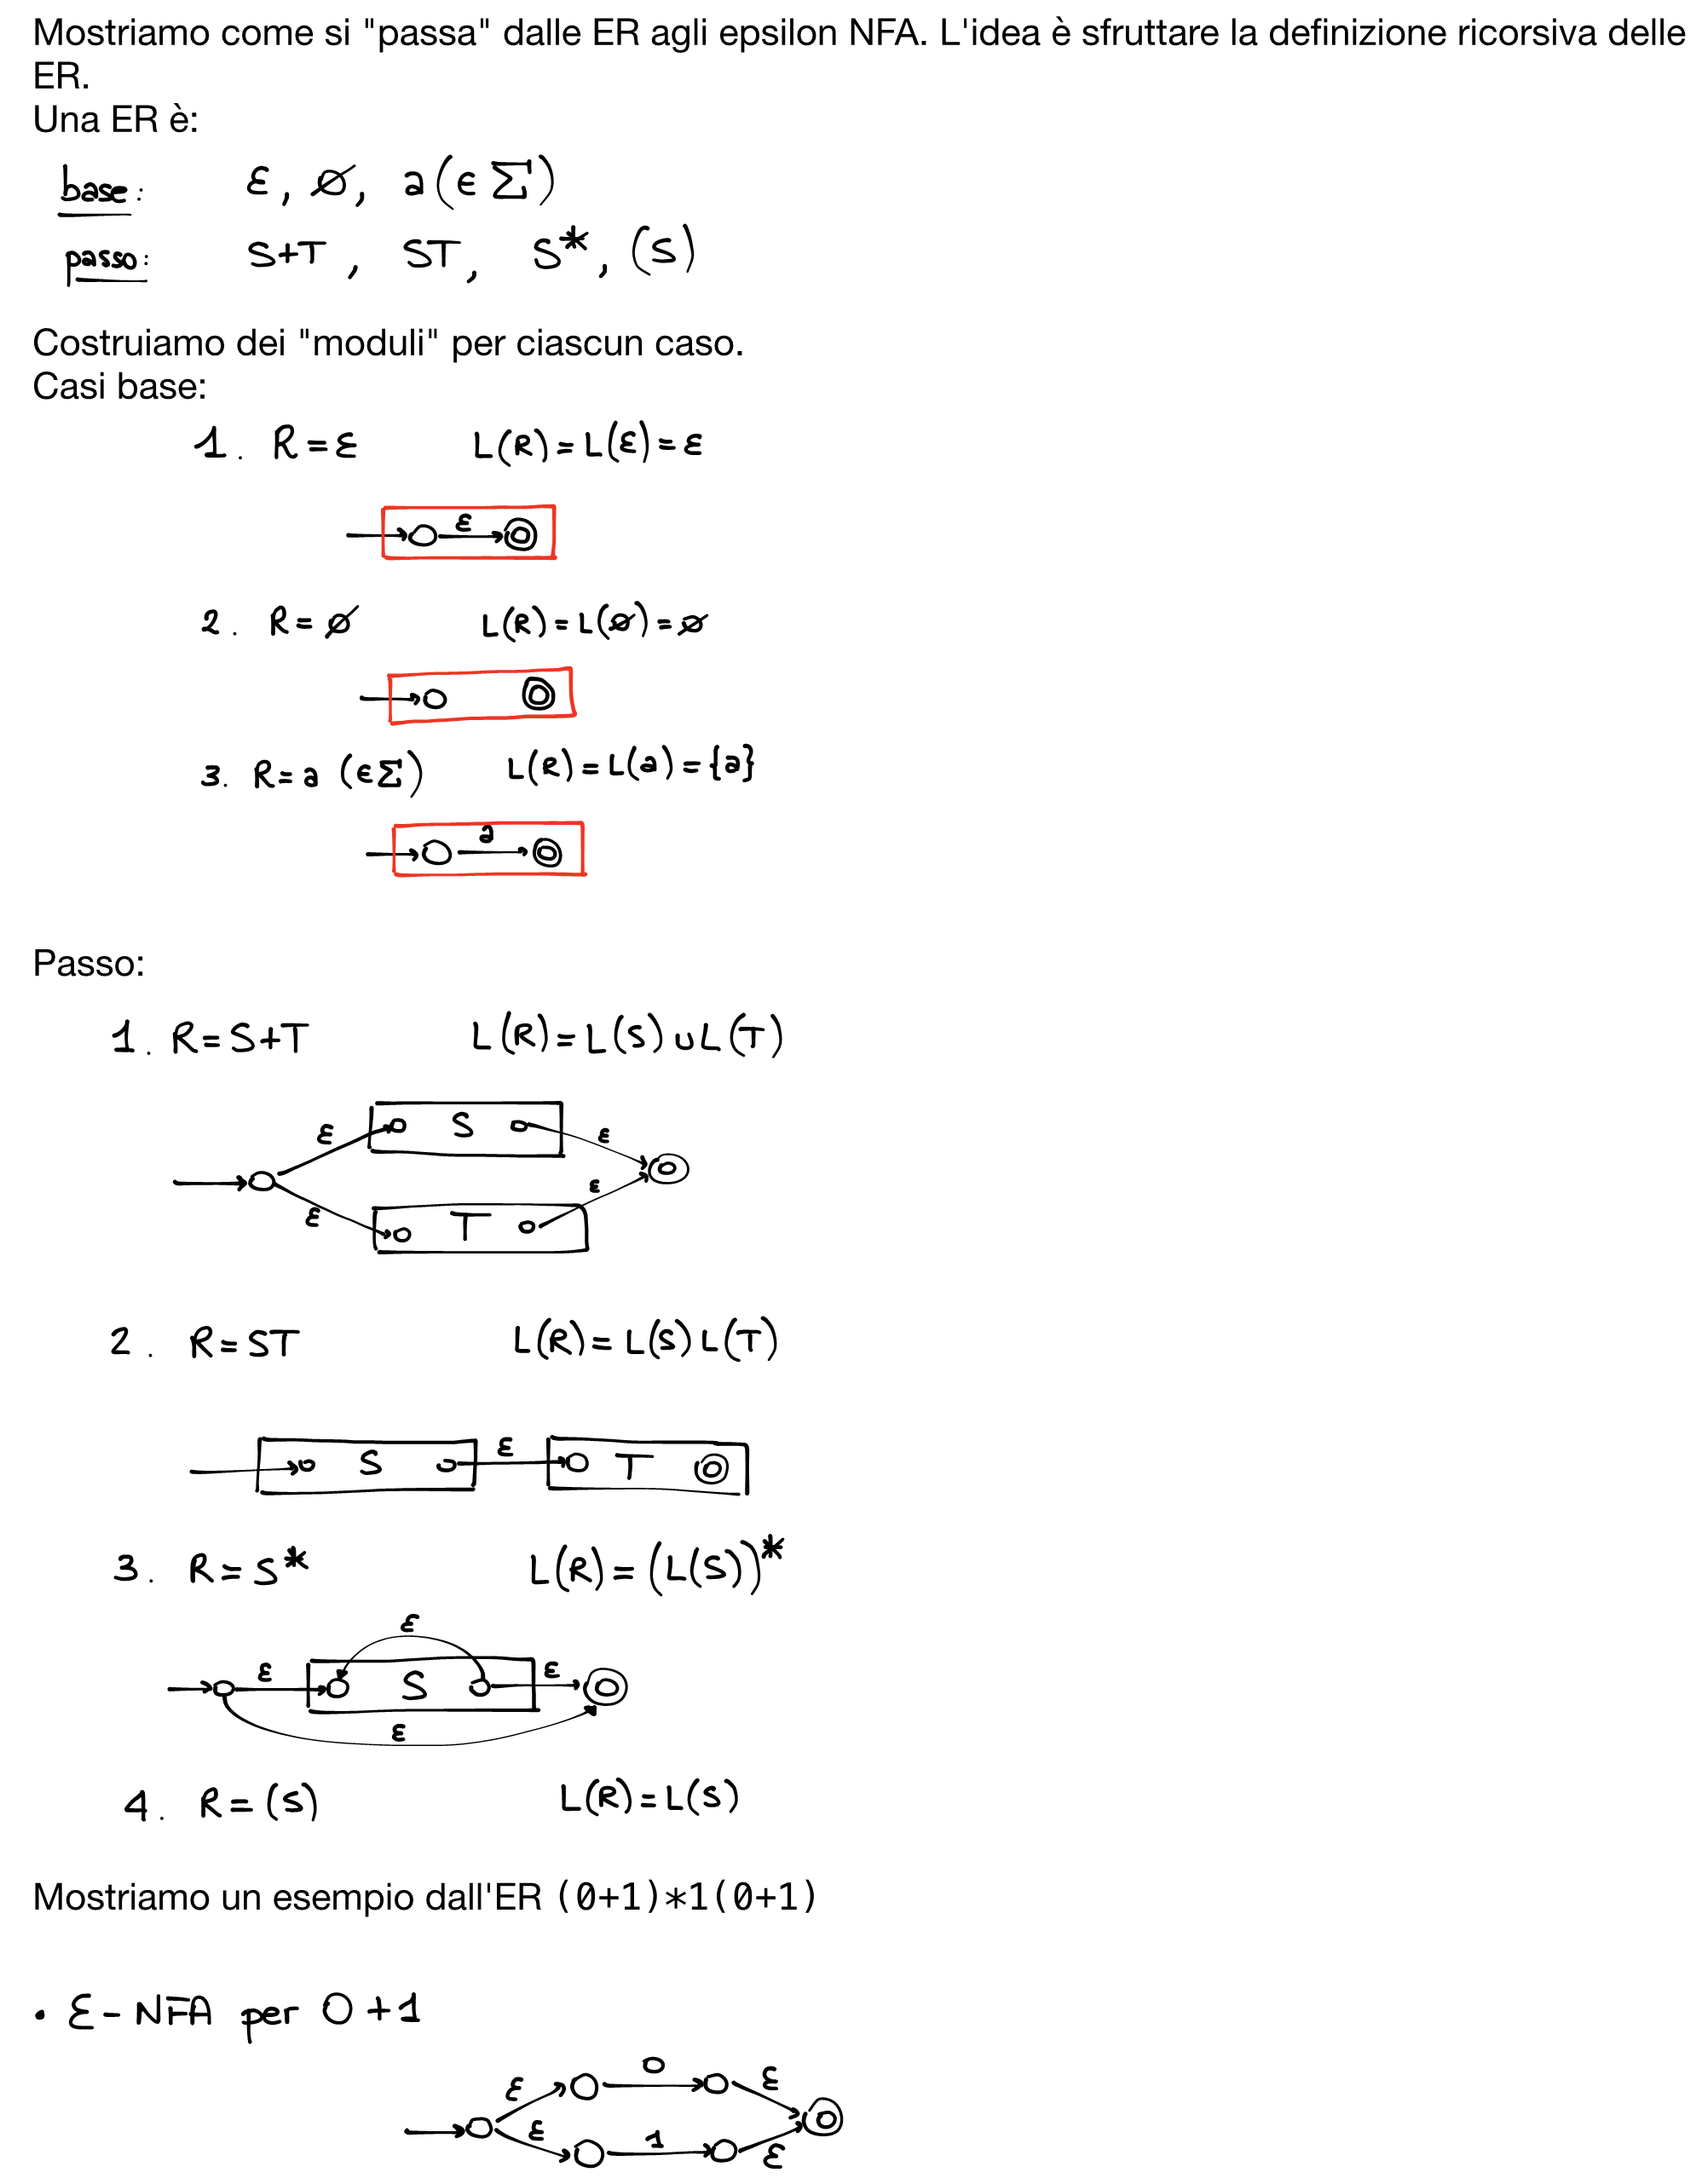 Mostriamo come si "passa" dalle ER agli epsilon NFA. L'idea è sfruttare la definizione ricorsiva delle
ER.
Una ER è:
base: ε, ∅, a(∈ Σ)
passo: S+T, ST, S*, (S)
Costruiamo dei "moduli" per ciascun caso.
Casi base:
1. R=ε L(R)=L(ε)=ε
ε
2. R=∅ L(R)=L(∅)=∅
3. R=a (∈Σ) L(R)=L(a)={a}
a
Passo:
1. R=S+T L(R)=L(S)∪L(T)
ε S ε
ε T ε
2. R=ST L(R)=L(S)L(T)
S ε T
3. R=S* L(R)=(L(S))*
ε
ε S ε
ε
4. R=(S) L(R)=L(S)
Mostriamo un esempio dall'ER (0+1)*1(0+1)
• ε-NFA per 0+1
ε 0 ε
ε 1 ε